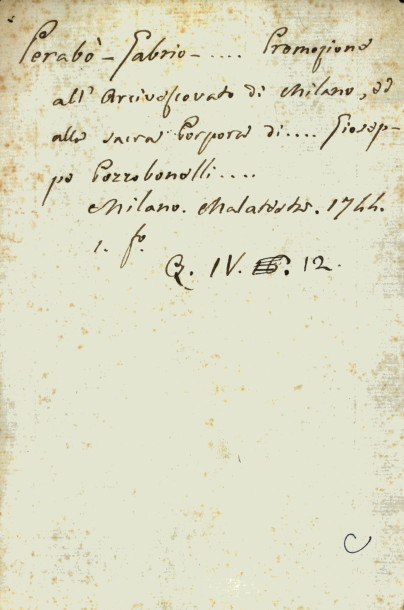 Perabò - Gabrio - .... Promozione
all' Arcivescovato di Milano, ed
alla sacra Porpora di .... Giosep-
po Pozzobonelli ....
Milano. Malatesta. 1744.
1. fo.
Q. IV. 12.
C